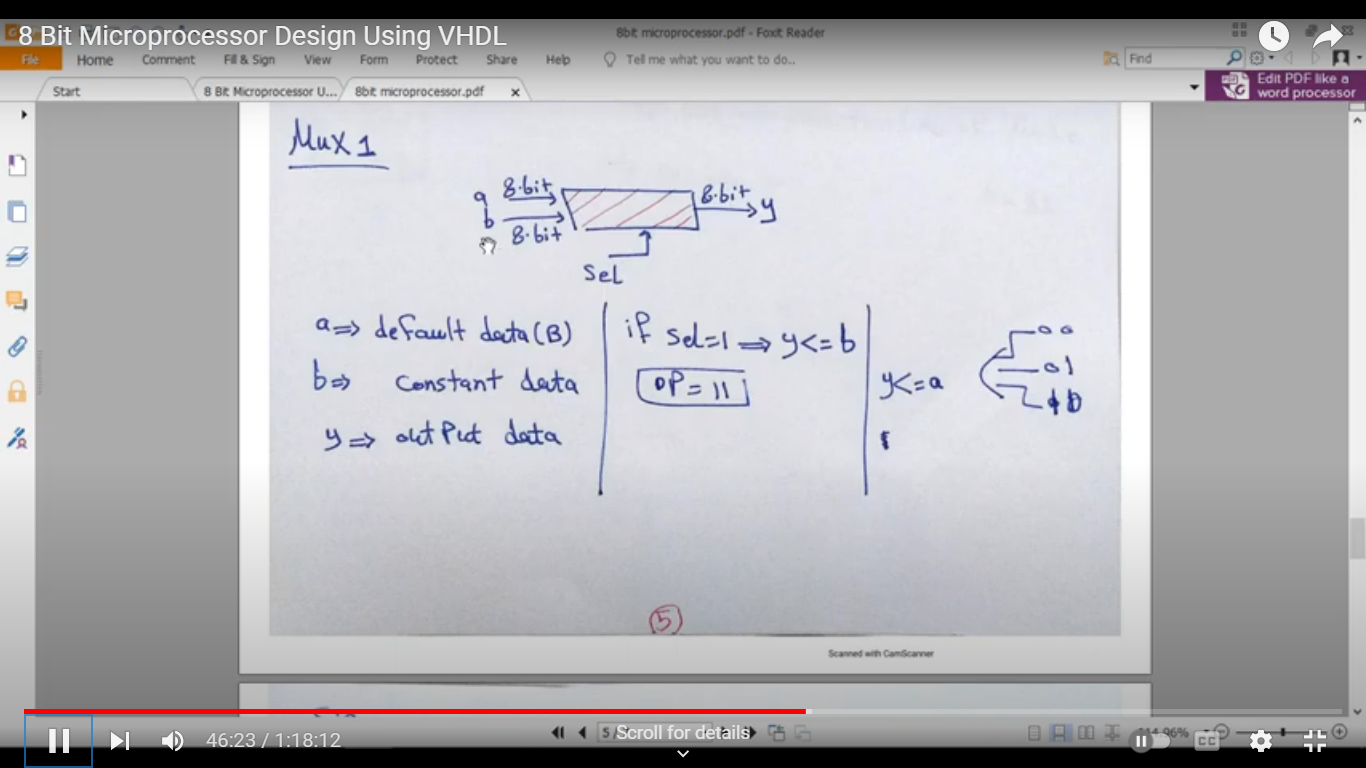 8 Bit Microprocessor Design Using VHDL
8bit microprocessor.pdf - Foxit Reader
File Home Comment Fill & Sign View Form Protect Share Help Tell me what you want to do.. Find
Start 8 Bit Microprocessor U... 8bit microprocessor.pdf
Edit PDF like a
word processor
Mux 1
a 8.bit 8.bit y
b 8.bit
Sel
a => default data (B)
b => Constant data
y => output data
if sel=1 => y<=b
OP = 11
y<=a
00
01
10
5
Scanned with CamScanner
46:23 / 1:18:12
5
Scroll for details
CC